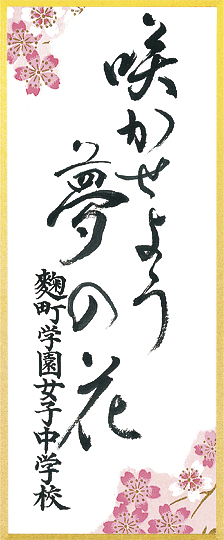 咲かせよう
夢の花
麴町学園女子中学校